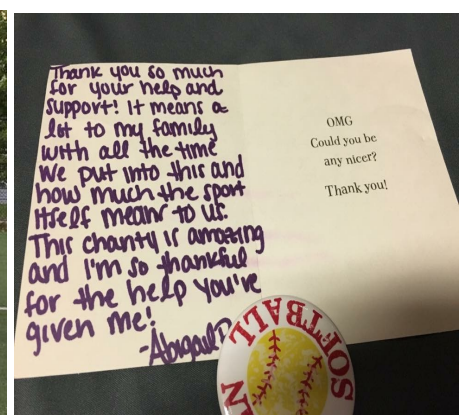 Thank you so much
for your help and
support! It means a
lot to my family
with all the time
we put into this and
how much the sport
itself means to us.
This charity is amazing
and I'm so thankful
for the help you've
given me!
OMG
Could you be
any nicer?
Thank you!
SOFTBALL